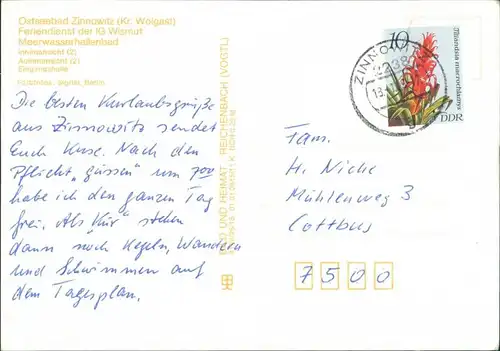 Ostseebad Zinnowitz (Kr. Wolgast)
Feriendienst der IG Wismut
Meerwasserhallenbad
Innenansicht (2)
Außenansicht (2)
Eingangshalle
Die besten Kurlaubsgrüße
aus Zinnowitz sendet
Euch Nach den
Pflicht „güssen" um 7⁰⁰
habe ich den ganzen Tag
frei. Als „Kür" stehen
dann noch Kegeln, Wandern
und Schwimmen auf
dem Tagesplan.
BILD UND HEIMAT REICHENBACH (VOGTL)
10
Tillandsia macrochlamys
DDR
ZINNOWITZ
2238
Fam.
H. Niche
Mühlenweg 3
Cottbus
7500